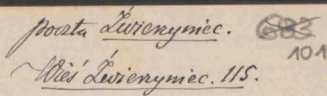 poczta Zwierzyniec.
101
Wieś Zwierzyniec. 115.